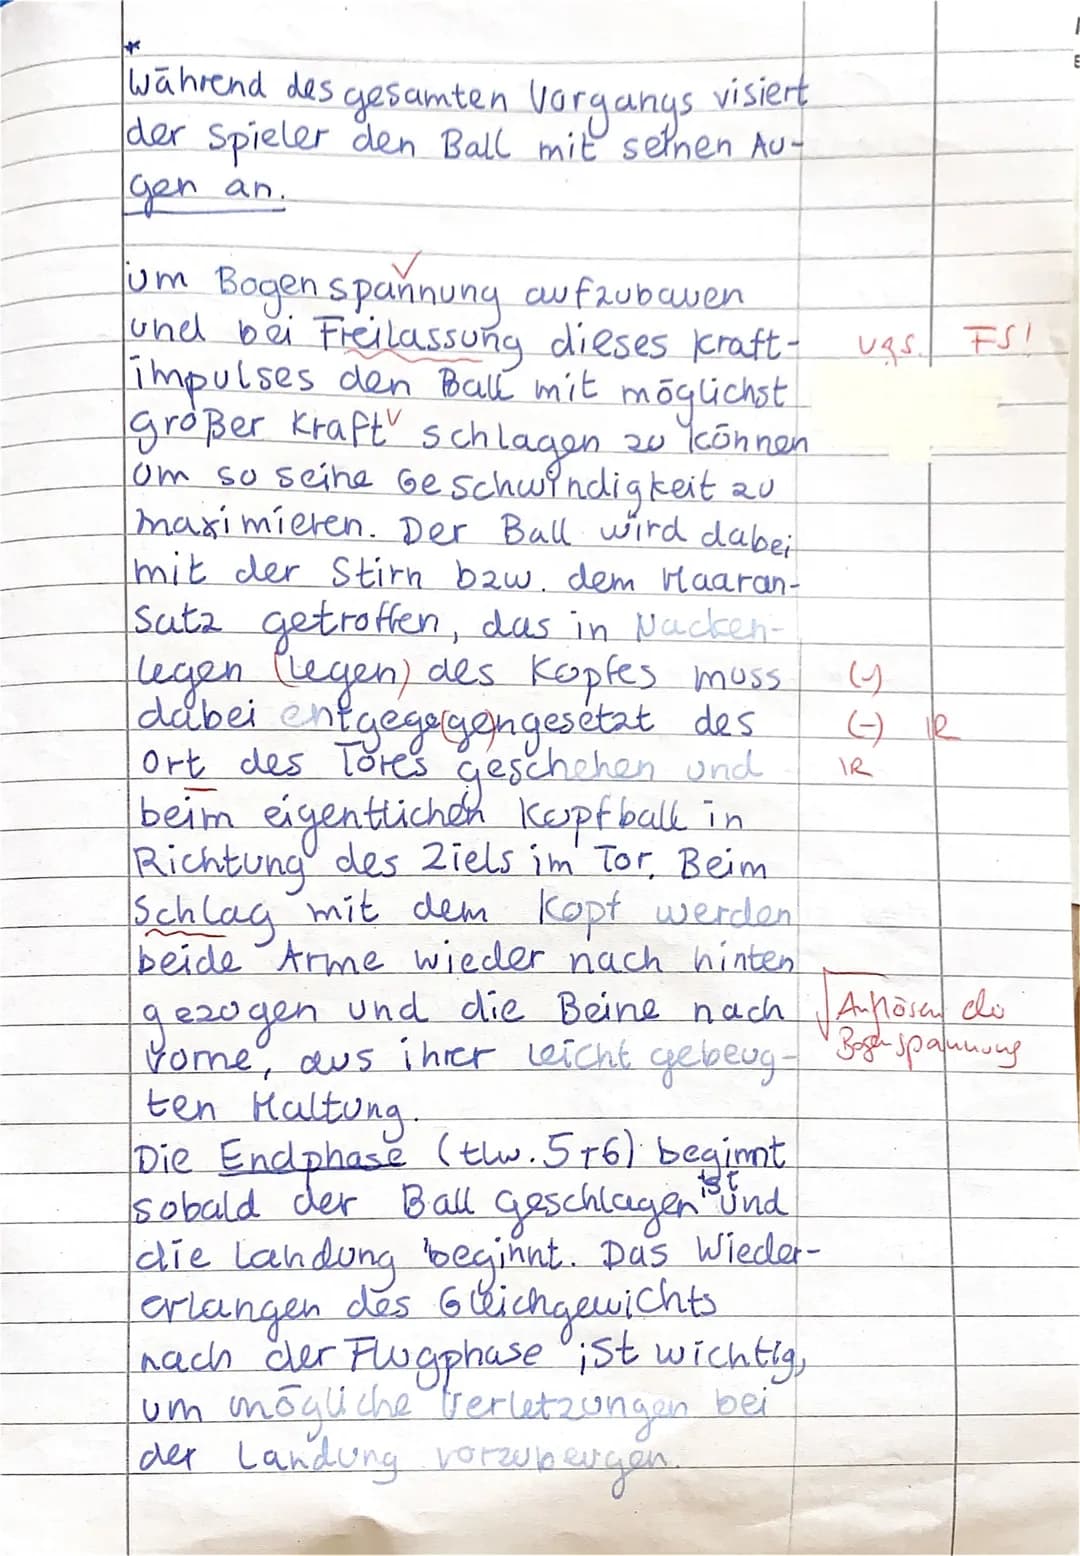 *
Während des gesamten Vorgangs visiert
der Spieler den Ball mit seinen Au-
gen an.
um Bogenspannung aufzubauen
und bei Freilassung dieses Kraft- ugs. FS!
impulses den Ball mit möglichst
großer Kraft schlagen zu können
um so seine Geschwindigkeit zu
maximieren. Der Ball wird dabei
mit der Stirn bzw. dem Haaran-
satz getroffen, das in Nacken-
legen (legen) des Kopfes muss (-)
dabei entgege(ge)ngesetzt des (-) R
Ort des Tores geschehen und R
beim eigentlichen Kopfball in
Richtung des Ziels im Tor. Beim
Schlag mit dem Kopf werden
beide Arme wieder nach hinten
gezogen und die Beine nach Auflösen der
vorne, aus ihrer leicht gebeug- Bogenspannung
ten Haltung.
Die Endphase (tlw. 5+6) beginnt
sobald der Ball geschlagen ist und
die Landung beginnt. Das Wieder-
erlangen des Gleichgewichts
nach der Flugphase ist wichtig,
um mögliche Verletzungen bei
der Landung vorzubeugen.